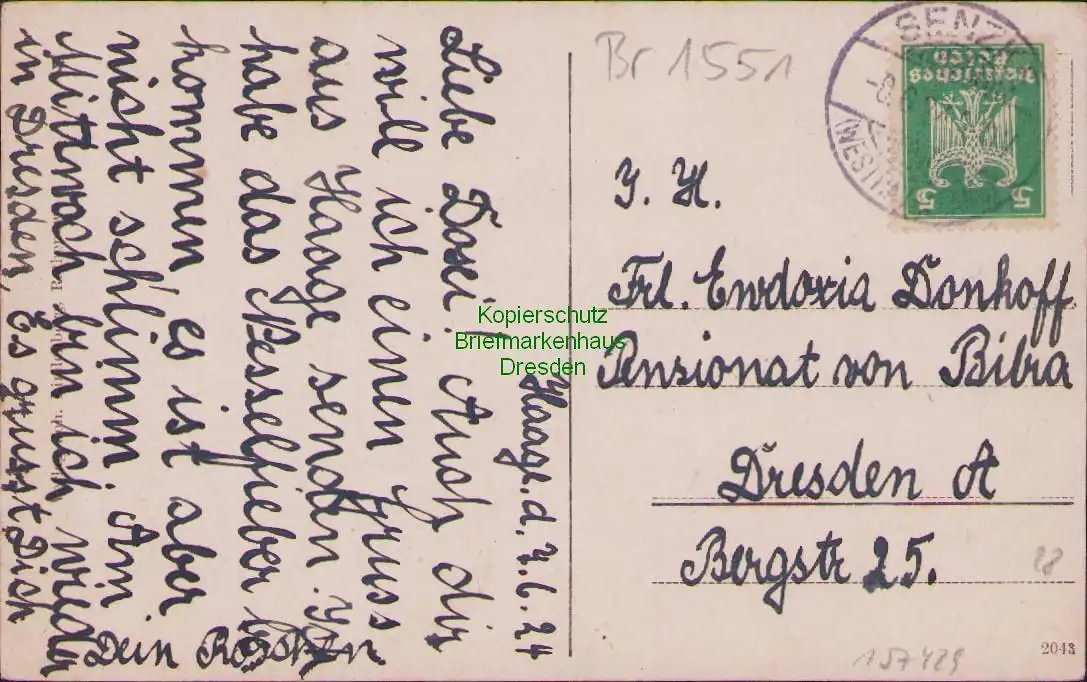 Haage. d. 7.6.24
Liebe Dosei! Auch dir
will ich einen Gruss
aus Haage senden. Ich
habe das Nesselfieber be
kommen es ist aber
nicht schlimm. Am
Mittwoch bin ich wieder
in Dresden, Es grüsst Dich
Dein Röschen
Br 1551
SENZ
(WEST
Deutsches
Reich
5 5
J. H.
Frl. Ewdoxia Donhoff
Pensionat von Bibra
Dresden A
Bergstr 25.
28
2043
157429
Kopierschutz
Briefmarkenhaus
Dresden